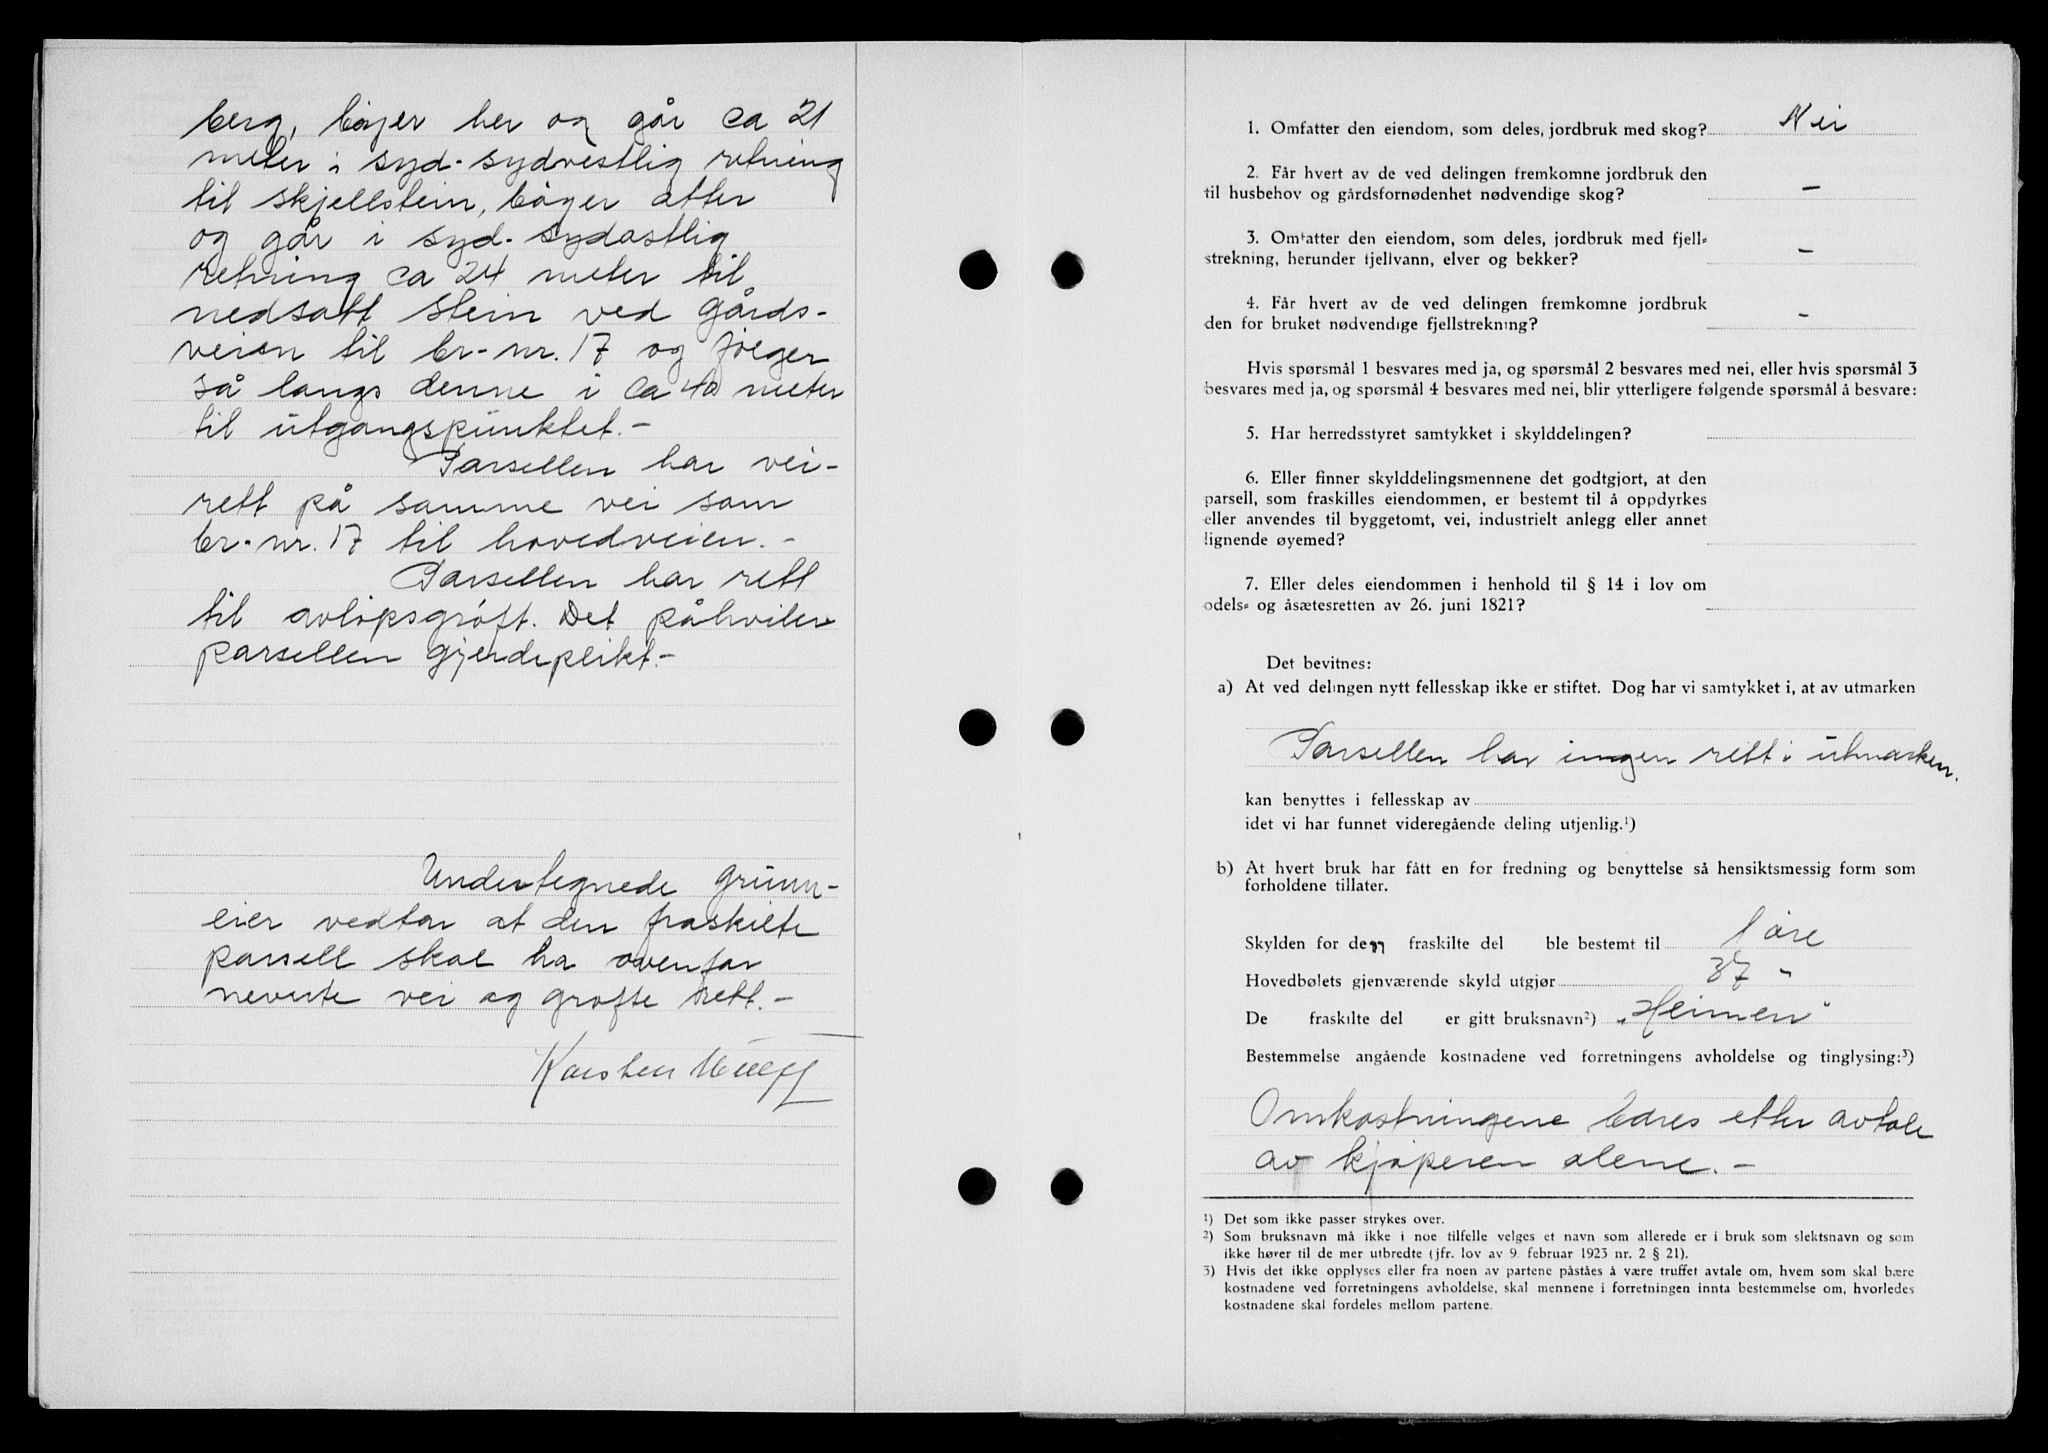 berg, bøyer her og går ca 21
meter i syd-sydvestlig retning
til skjellstein, bøyer atter
og går i syd-sydøstlig
retning ca 24 meter til
nedsatt stein ved gårds-
veien til br.nr. 17 og følger
så langs denne i ca 40 meter
til utgangspunktet.-
Parsellen har vei-
rett på samme vei som
br.nr. 17 til hovedveien.-
Parsellen har rett
til avløpsgrøft. Det påhviler
parsellen gjerdeplikt.-
Undertegnede grunn-
eier vedtar at den fraskilte
parsell skal ha ovenfor
nevnte vei og grøfte rett.-
Karsten
1. Omfatter den eiendom, som deles, jordbruk med skog? Nei
2. Får hvert av de ved delingen fremkomne jordbruk den
til husbehov og gårdsfornødenhet nødvendige skog? -
3. Omfatter den eiendom, som deles, jordbruk med fjell-
strekning, herunder fjellvann, elver og bekker? -
4. Får hvert av de ved delingen fremkomne jordbruk
den for bruket nødvendige fjellstrekning? -
Hvis spørsmål 1 besvares med ja, og spørsmål 2 besvares med nei, eller hvis spørsmål 3
besvares med ja, og spørsmål 4 besvares med nei, blir ytterligere følgende spørsmål å besvare:
5. Har herredsstyret samtykket i skylddelingen?
6. Eller finner skylddelingsmennene det godtgjort, at den
parsell, som fraskilles eiendommen, er bestemt til å oppdyrkes
eller anvendes til byggetomt, vei, industrielt anlegg eller annet
lignende øyemed?
7. Eller deles eiendommen i henhold til § 14 i lov om
odels- og åsætesretten av 26. juni 1821?
Det bevitnes:
a) At ved delingen nytt fellesskap ikke er stiftet. Dog har vi samtykket i, at av utmarken
Parsellen har ingen rett i utmarken.
kan benyttes i fellesskap av
idet vi har funnet videregående deling utjenlig.¹)
b) At hvert bruk har fått en for fredning og benyttelse så hensiktsmessig form som
forholdene tillater.
Skylden for den fraskilte del ble bestemt til 1 øre
Hovedbølets gjenværende skyld utgjør 37 "
De fraskilte del er gitt bruksnavn²) "Heimen"
Bestemmelse angående kostnadene ved forretningens avholdelse og tinglysing:³)
Omkostningene bæres etter avtale
av kjøperen alene.-
¹) Det som ikke passer strykes over.
²) Som bruksnavn må ikke i noe tilfelle velges et navn som allerede er i bruk som slektsnavn og som
ikke hører til de mer utbredte (jfr. lov av 9. februar 1923 nr. 2 § 21).
³) Hvis det ikke opplyses eller fra noen av partene påståes å være truffet avtale om, hvem som skal bære
kostnadene ved forretningens avholdelse, skal mennene i forretningen innta bestemmelse om, hvorledes
kostnadene skal fordeles mellom partene.